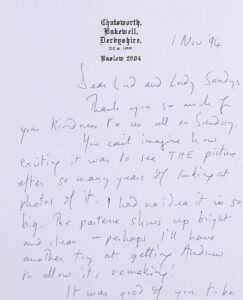 Chatsworth,
Bakewell,
Derbyshire.
DE4 1PP
Baslow 2204
1 Nov 94
Dear Lord and Lady Sandys
Thank you so much for
your kindness to us all on Sunday.
You can't imagine how
exciting it was to see THE picture
after so many years of looking at
photos of it. I had no idea it is so
big. The parterre shows up bright
and clear - perhaps I'll have
another try at getting Andrew
to allow its remaking!
It was good of you to be